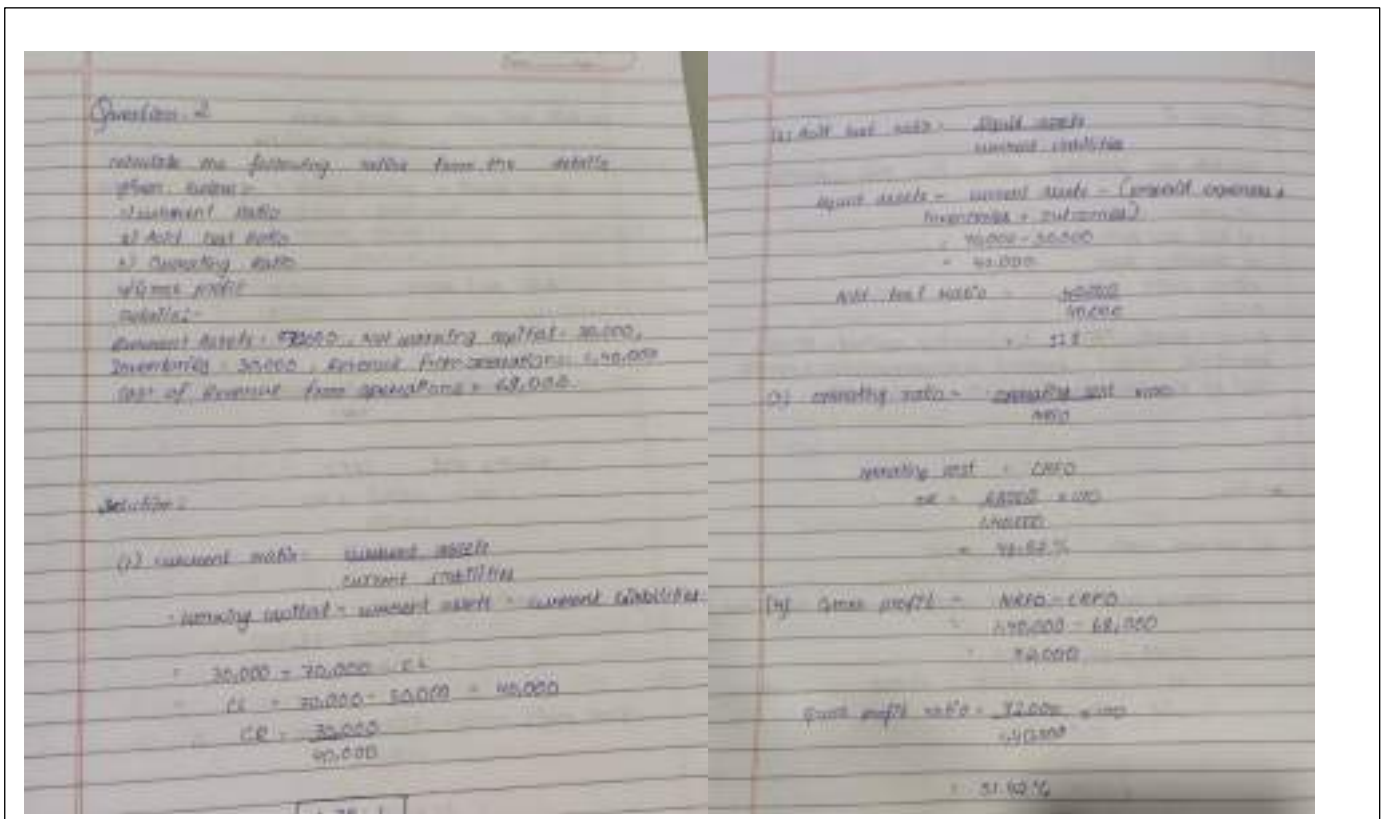 Question. 2
calculate the following ratios from the details
given below :-
1) current Ratio
2) Acid test Ratio
3) Operating Ratio
4) Gross profit
Details:-
Current Assets = 70000, Net working capital = 30,000,
Inventories = 30000, Revenue from operations = 1,40,000
cost of Revenue from operations = 68,000.
Solution :
(1) current ratio = current assets
current liabilities
working capital = current assets - current liabilities
= 30,000 = 70,000 CL
= CL = 70,000 - 30,000 = 40,000
CR = 70,000
40,000
(2) Acid test ratio = liquid assets
current liabilities
liquid assets = current assets - (prepaid expenses +
inventories +
= 70,000 - 30,000
= 40,000
Acid test ratio = 40,000
40,000
(3) operating ratio = operating cost x100
operating cost = CRFO
= 68000 x 100
1,40,000
= 48.57 %
(4) Gross profit = NRFO - CRFO
1,40,000 - 68,000
72,000
Gross profit ratio = 72,000 x 100
1,40,000
= 51.42 %